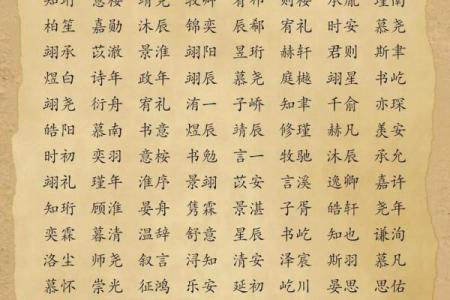 柏笙 嘉勋 沐辰 锦奕 辰郗 宥礼 时安 慕尧
翊承 苡澈 景淮 翊阳 昱珩 赫轩 君则 斯聿
煜白 诗年 政年 翊辰 慕尧 庭樾 翊星 书屹
翊尧 衍舟 宥礼 洧一 子峤 知聿 千俞 亦琛
皓阳 慕南 书意 煜辰 靖辰 修瑾 赫凡 羡安
时初 奕羽 意桉 书勉 言一 牧驰 沐辰 承允
翊礼 瑾年 淮序 景翊 苡安 言溪 逸卿 嘉许
知珩 顾淮 晏舟 隽霖 景湛 子胥 皓轩 尧年
奕霖 暮清 温辞 舒意 星辰 书屹 知也 谦洵
洛尘 师尧 叙言 浔知 清安 泽宸 斯羽 慕凡
慕怀 崇光 征鸿 乐安 延初 屿川 晏思 思佑